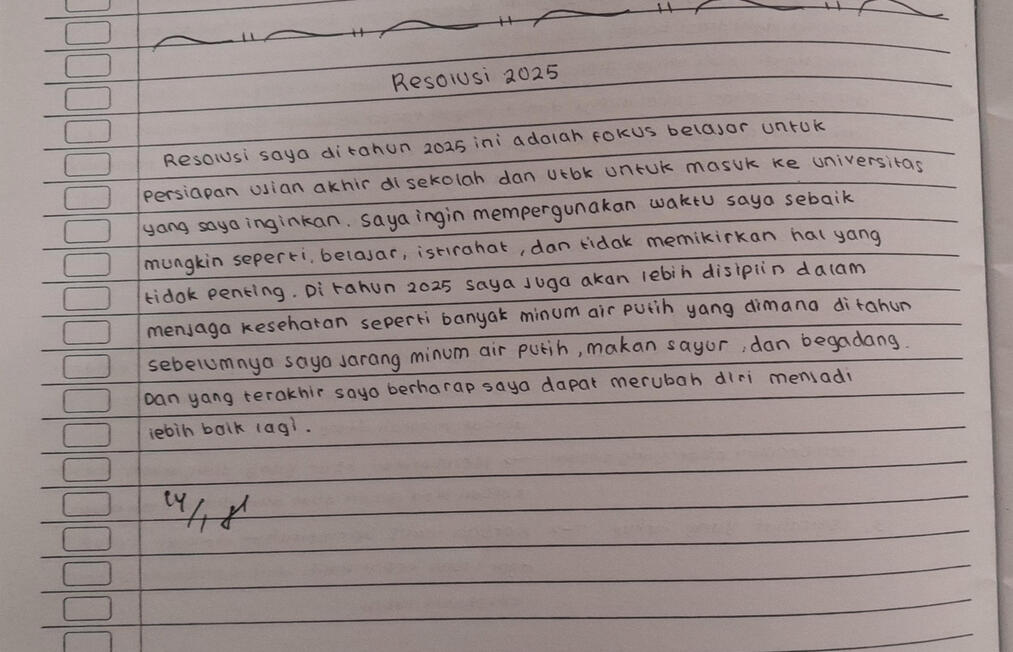 Resolusi 2025
Resolusi saya di tahun 2025 ini adalah fokus belajar untuk
persiapan ujian akhir di sekolah dan utbk untuk masuk ke universitas
yang saya inginkan. Saya ingin mempergunakan waktu saya sebaik
mungkin seperti, belajar, istirahat, dan tidak memikirkan hal yang
tidak penting. Di tahun 2025 saya juga akan lebih disiplin dalam
menjaga kesehatan seperti banyak minum air putih yang dimana di tahun
sebelumnya saya jarang minum air putih, makan sayur, dan begadang.
Dan yang terakhir saya berharap saya dapat merubah diri menjadi
lebih baik lagi.